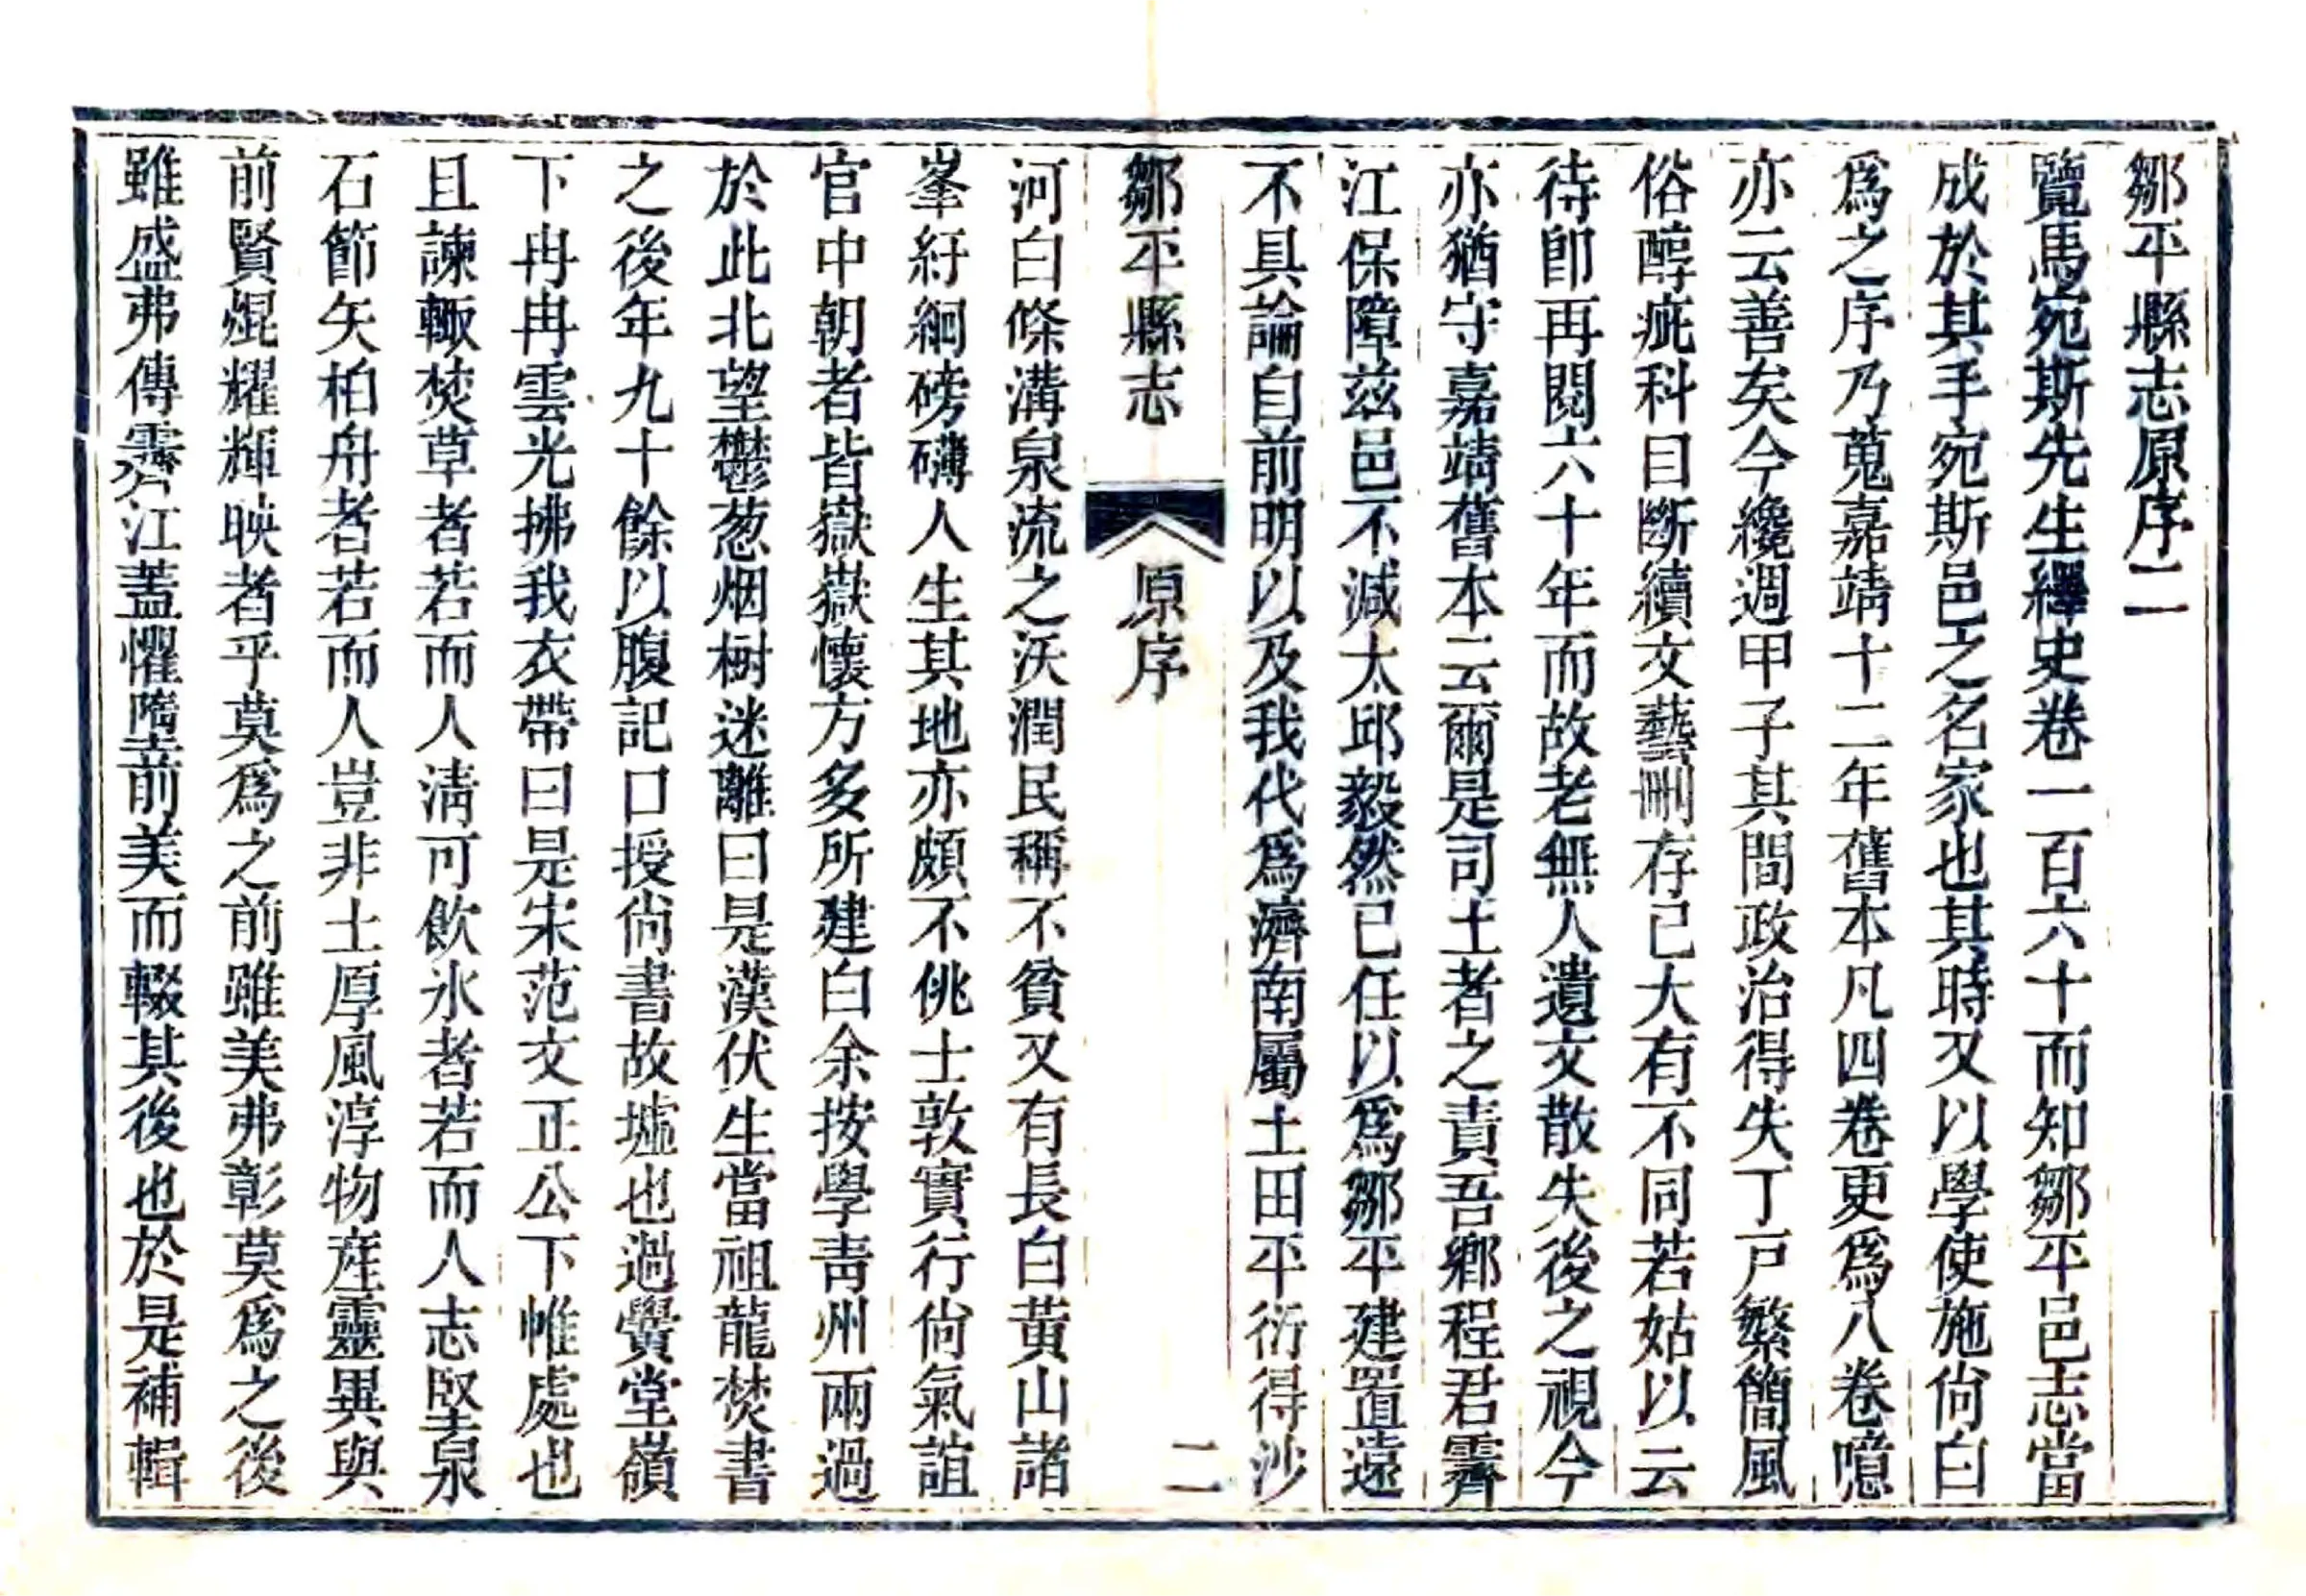 鄒平縣志原序二
覽馬宛斯先生繹史卷一百六十而知鄒平邑志當
成於其手宛斯邑之名家也其時又以學使施尙白
爲之序乃蒐嘉靖十二年舊本凡四卷更爲八卷噫
亦云善矣今纔週甲子其間政治得失丁戸繁簡風
俗醇疵科目斷續文藝刪存已大有不同若姑以云
待卽再閱六十年而故老無人遺文散失後之視今
亦猶守嘉靖舊本云爾是司土者之責吾鄉程君霽
江保障兹邑不減太邱毅然已任以爲鄒平建置遠
不具論自前明以及我代爲濟南屬土田平衍得沙
鄒平縣志 原序 二
河白條溝泉流之沃潤民稱不貧又有長白黃山諸
峯紆綱磅礴人生其地亦頗不佻士敦實行尙氣誼
官中朝者皆嶽嶽懷方多所建白余按學靑州兩過
於此北望鬱葱烟樹迷離曰是漢伏生當祖龍焚書
之後年九十餘以腹記口授尙書故墟也過黌堂嶺
下冉冉雲光拂我衣帶曰是宋范文正公下帷處也
且諫輙焚草者若而人淸可飲氷者若而人志堅泉
石節矢柏舟者若而人豈非土厚風淳物產靈異與
前賢焜耀輝映者乎莫爲之前雖美弗彰莫爲之後
雖盛弗傳霽江蓋懼隳前美而輟其後也於是補輯